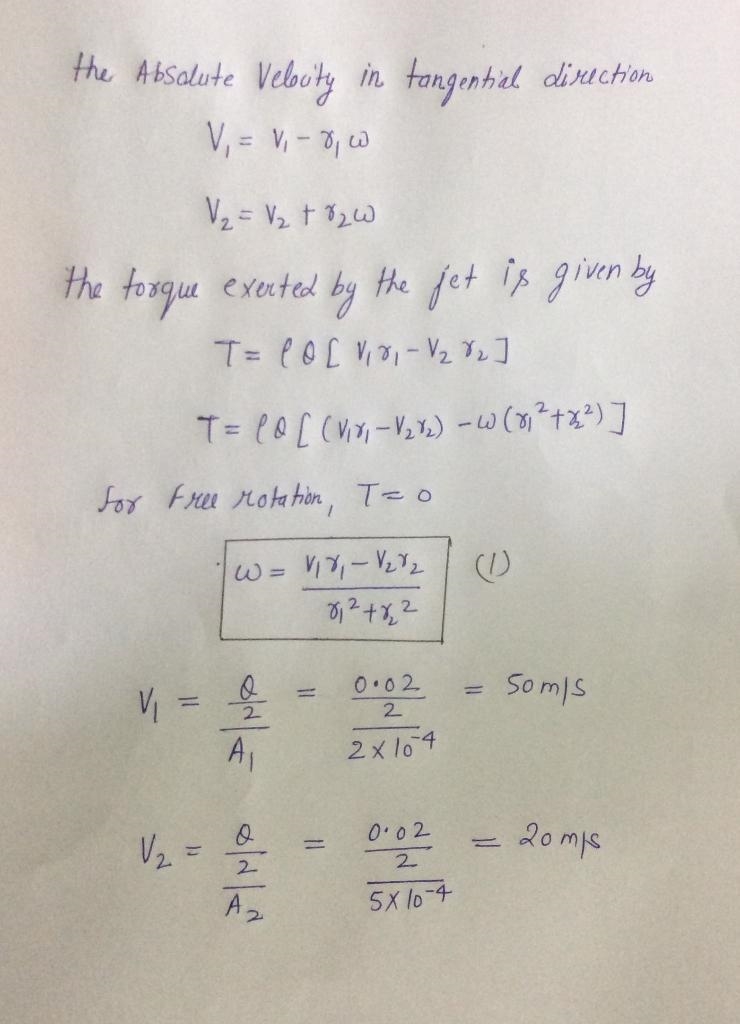 the Absolute Velocity in tangential direction
V₁ = V₁ - r₁ω
V₂ = V₂ + r₂ω
the torque exerted by the jet is given by
T = ρQ [ V₁r₁ - V₂ r₂ ]
T = ρQ [ (V₁r₁ - V₂r₂) - ω (r₁² + r₂²) ]
for free rotation, T = 0
ω = V₁r₁ - V₂r₂ / r₁² + r₂² (1)
V₁ = Q/2 / A₁ = 0.02/2 / 2 x 10⁻⁴ = 50 m/s
V₂ = Q/2 / A₂ = 0.02/2 / 5 x 10⁻⁴ = 20 m/s